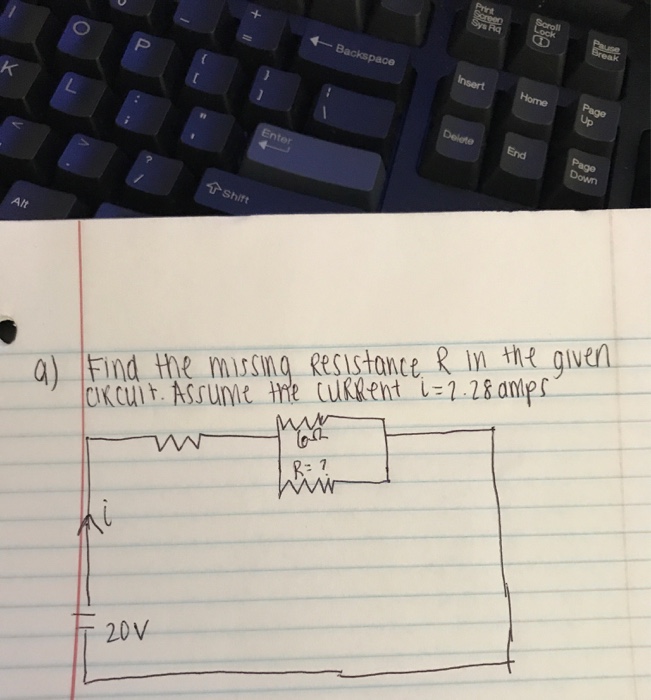 Print Screen Sys Rq
Scroll Lock
Pause Break
+ =
← Backspace
O
P
{ [
} ]
| \
Insert
Home
Page Up
K
L
: ;
"
Enter
Delete
End
Page Down
< 
> .
? /
⇧ Shift
Alt
a) Find the missing Resistance R in the given
circuit. Assume the cuRRent i=2.28 amps
6Ω
R= ?
i
20V